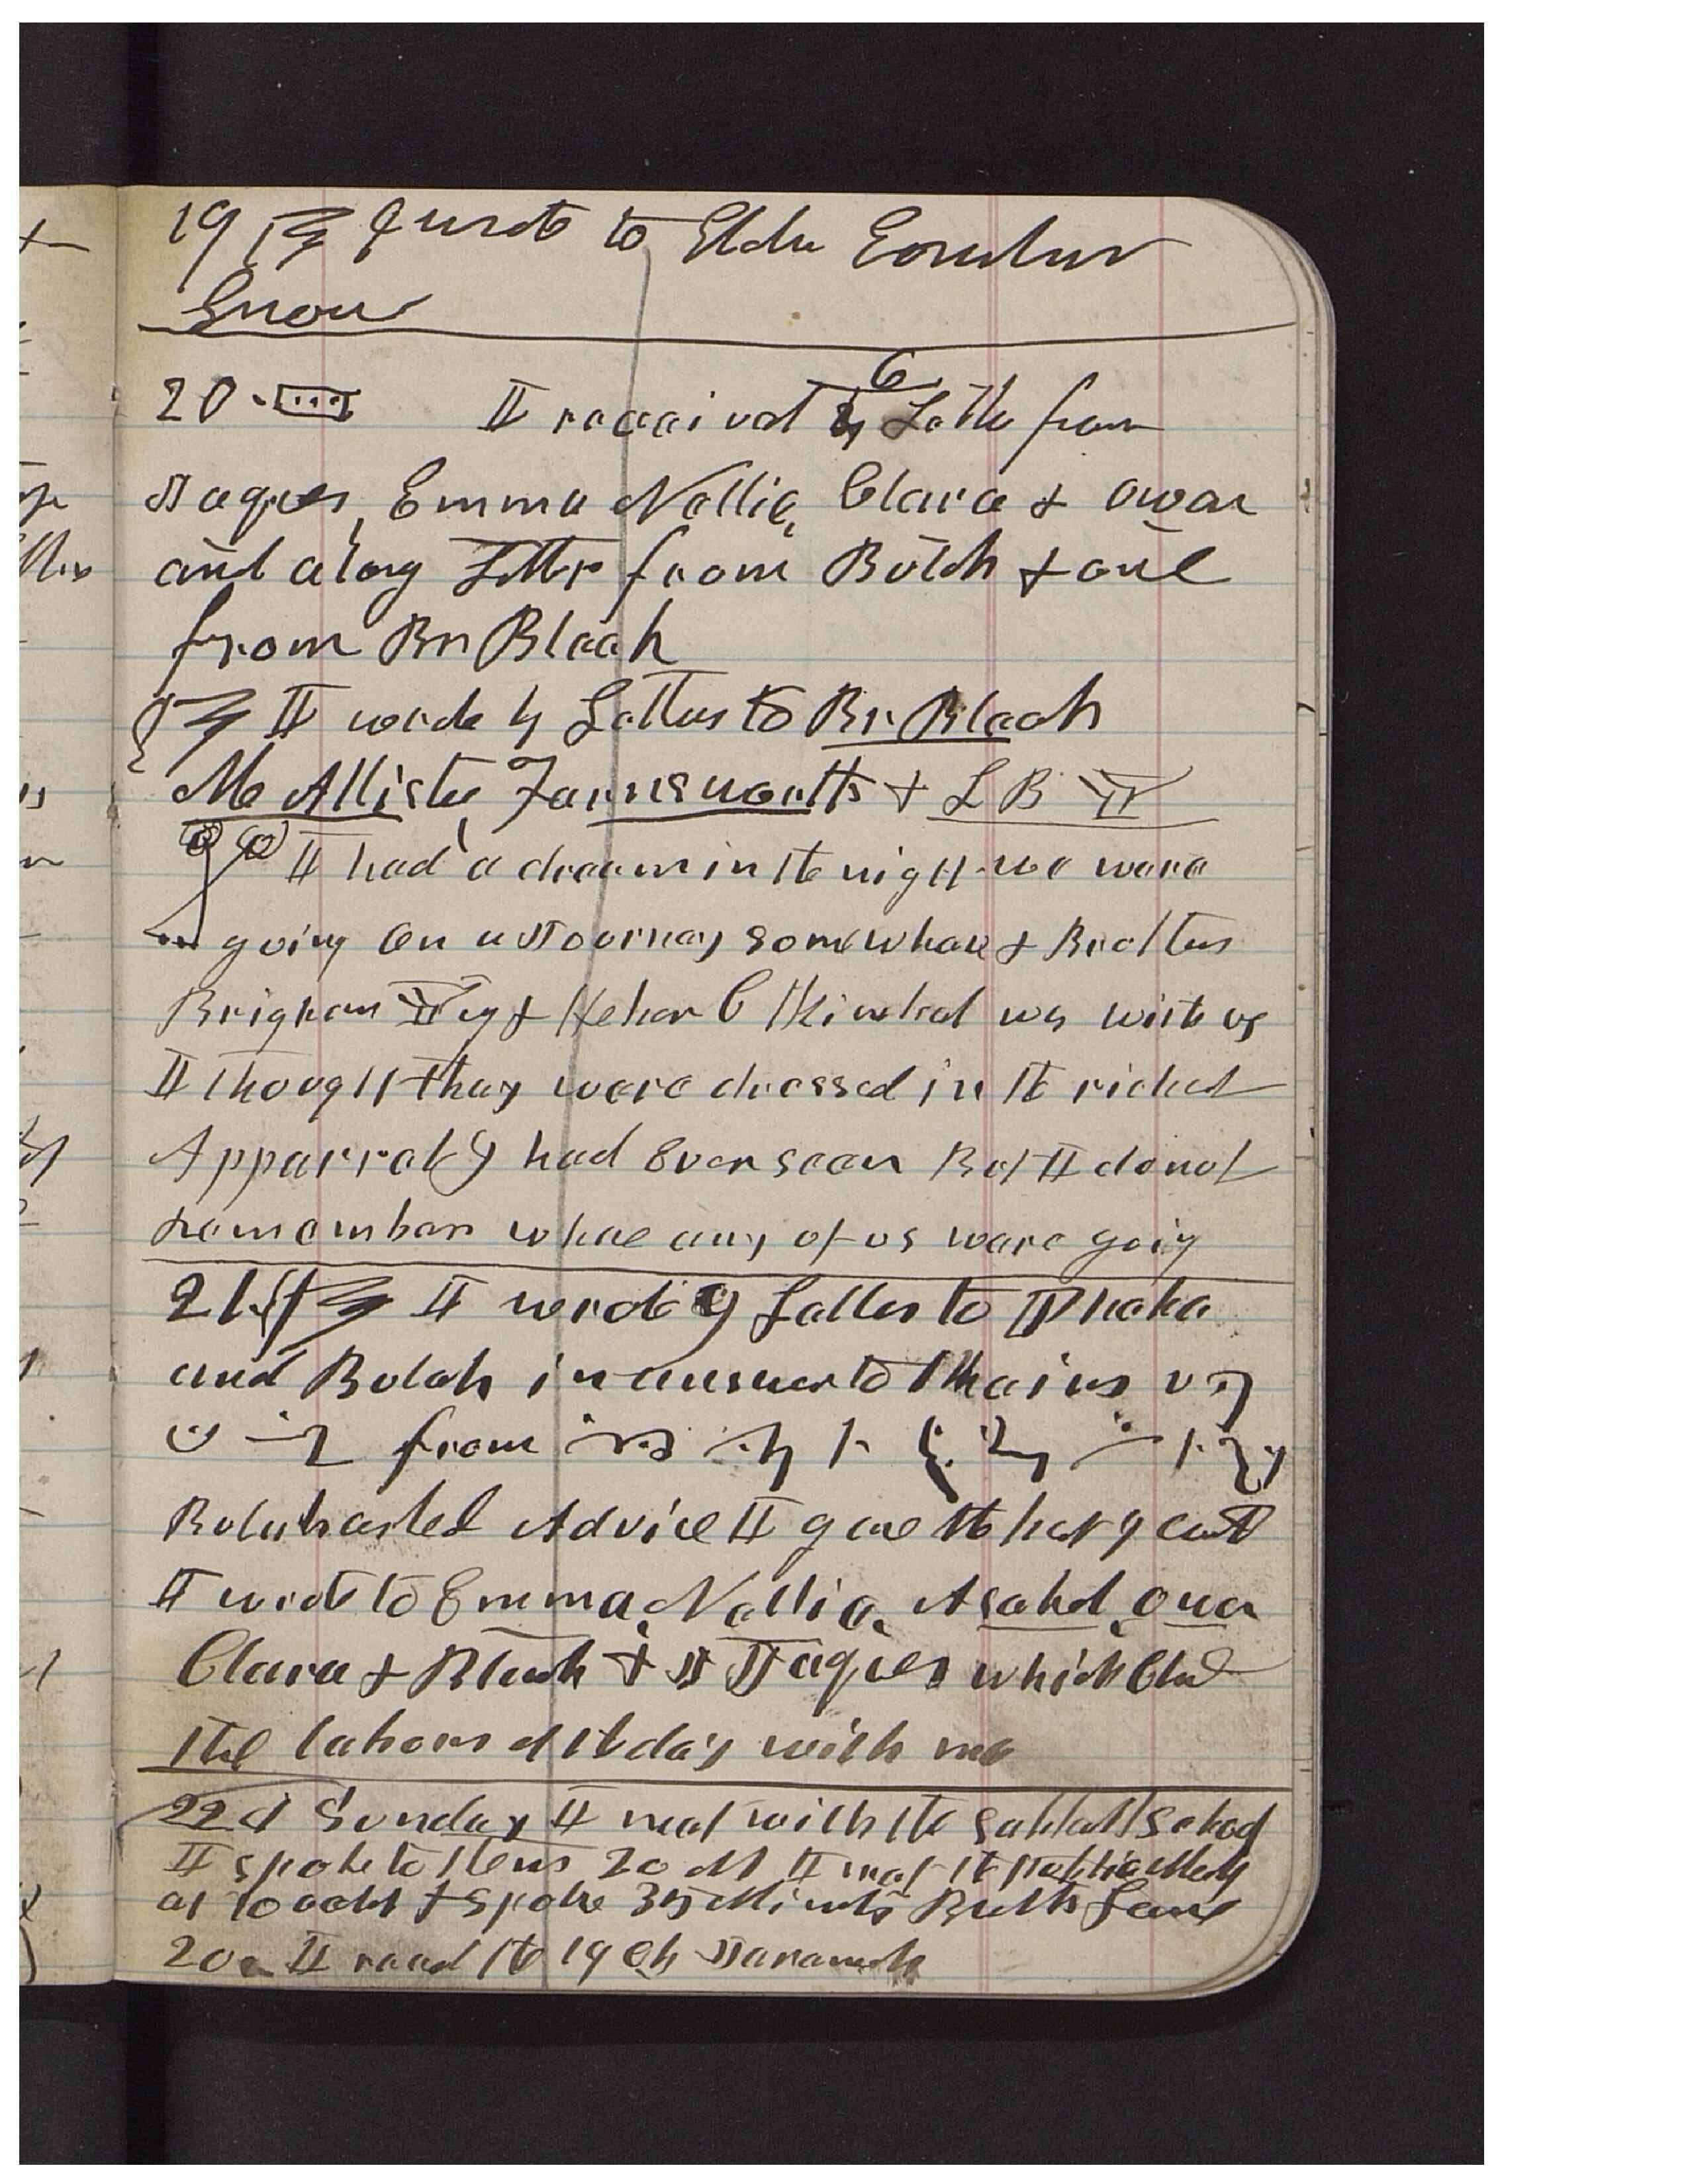 19 I wrote to Elder Erastus
Snow
20 I received 6 Letters from
Jaques, Emma Nellie, Clara & Owen
and a long Letter from Bulah & one
from Br Bleak
I wrote 4 Letters to Br Bleak
McAllister, Farnsworth & L B Y
I had a dream in the night we were
going on a Journey somewhare & Brothers
Brigham Yg & Heber C Kimball was with us
I thought they were dressed in the richest
Apparrel I had Ever seen But I do not
remember whare any of us were going
21 I wrote 9 Letters to Phebe
and Bulah in answer to theirs
from
Bulah asked Advice I gave the best I could
I wrote to Emma, Nellie, Asahel, Owen
Clara & Bleak & Jaques which Closed
the labors of the day with me
22d Sunday I met with the Sabbath School
I spoke to them 20 M I met the Public Meeting
at 10 oclok & spoke 35 Minuts Br Lane
20 I read the 19 Ch Jaramiah